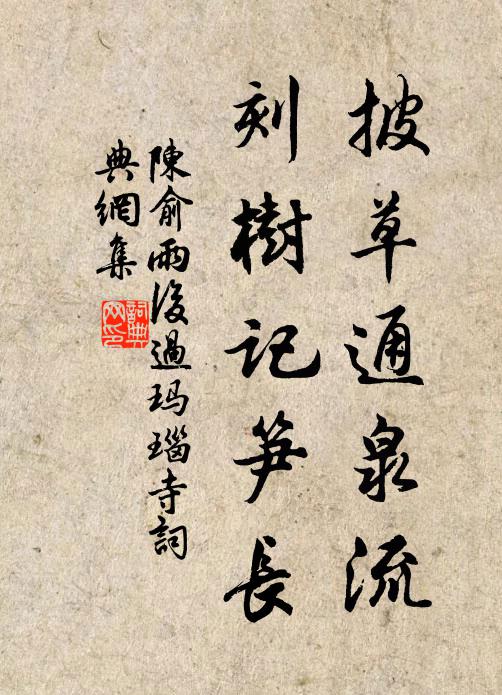 披草通泉流
刻樹記笋長
陳俞雨後過玛瑙寺詞
典網集
詞典網印